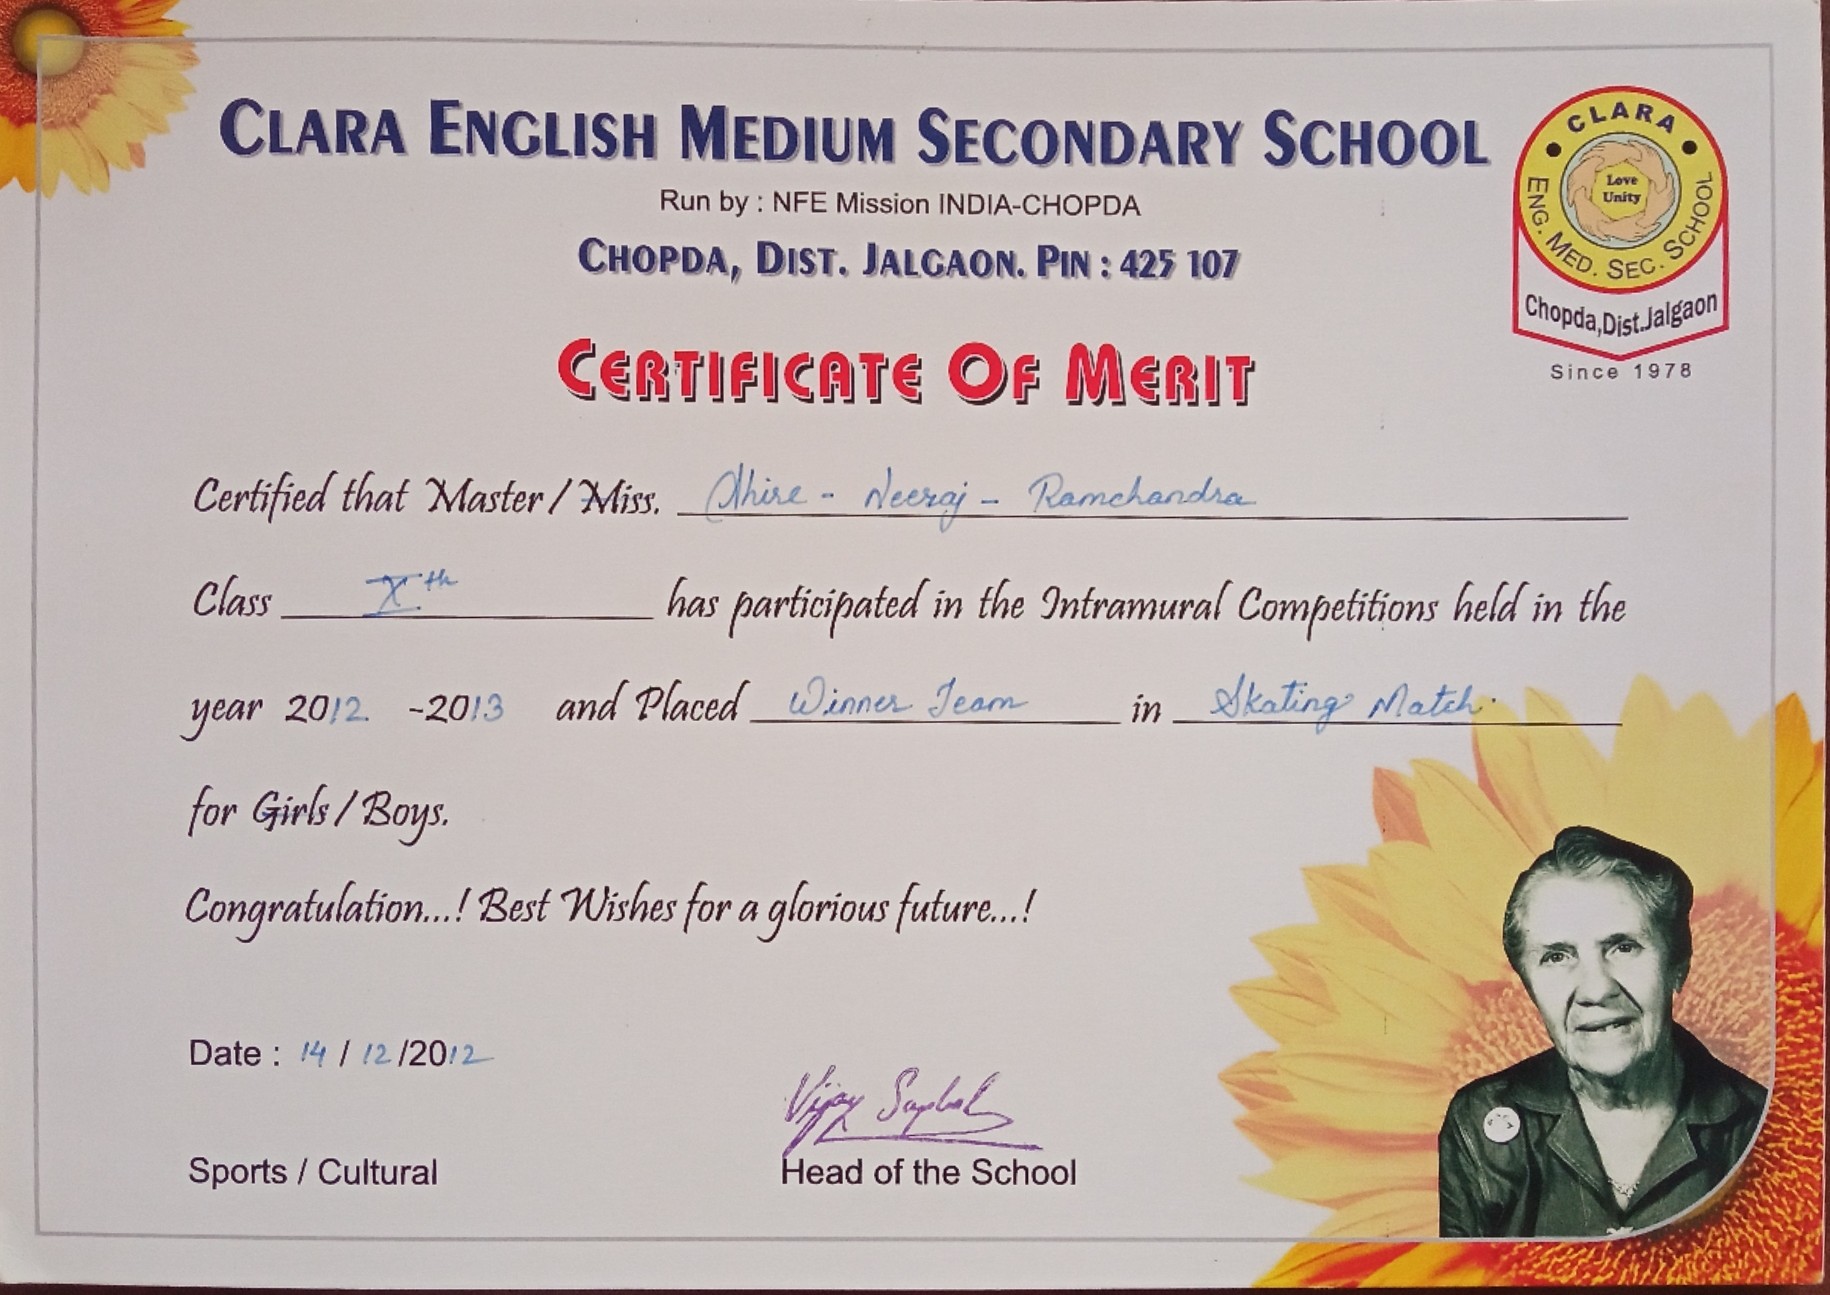 CLARA ENGLISH MEDIUM SECONDARY SCHOOL
Run by : NFE Mission INDIA-CHOPDA
CHOPDA, DIST. JALGAON. PIN : 425 107
CLARA
ENG. MED. SEC. SCHOOL
Love
Unity
Chopda,Dist.Jalgaon
Since 1978
CERTIFICATE OF MERIT
Certified that Master / Miss. Ahire - Neeraj - Ramchandra
Class Xth has participated in the Intramural Competitions held in the
year 2012 -2013 and Placed Winner Team in Skating Match.
for Girls / Boys.
Congratulation...! Best Wishes for a glorious future...!
Date : 14 / 12 /2012
Vijay
Sports / Cultural
Head of the School